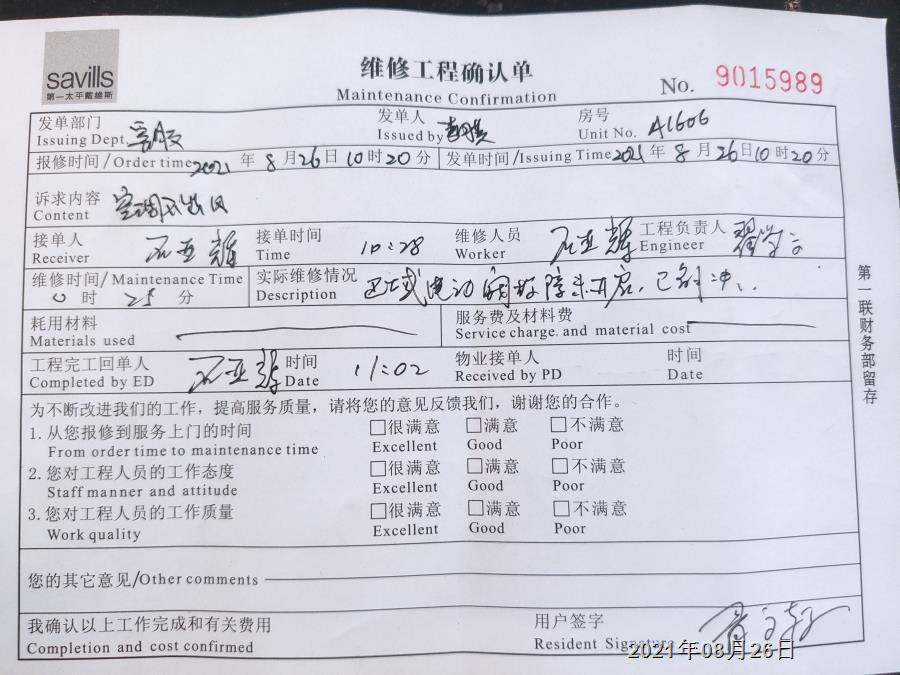 savills
第一太平戴維斯
维修工程确认单
Maintenance Confirmation
No. 9015989
发单部门 发单人 房号
Issuing Dept. 客服 Issued by Unit No. A1606
报修时间/Order time 2021 年 8 月 26 日 10 时 20 分 发单时间/Issuing Time 2021 年 8 月 26 日 10 时 20 分
诉求内容 空调不出风
Content
接单人 石亚辉 接单时间 10:28 维修人员 石亚辉 工程负责人
Receiver Time Worker Engineer
维修时间/Maintenance Time 实际维修情况
0 时 25 分 Description 区域电动阀故障未开启,已
耗用材料 服务费及材料费
Materials used Service charge. and material cost
工程完工回单人 石亚辉 时间 11:02 物业接单人 时间
Completed by ED Date Received by PD Date
为不断改进我们的工作，提高服务质量，请将您的意见反馈我们，谢谢您的合作。
1. 从您报修到服务上门的时间 □很满意 □满意 □不满意
From order time to maintenance time Excellent Good Poor
2. 您对工程人员的工作态度 □很满意 □满意 □不满意
Staff manner and attitude Excellent Good Poor
3. 您对工程人员的工作质量 □很满意 □满意 □不满意
Work quality Excellent Good Poor
您的其它意见/Other comments
我确认以上工作完成和有关费用 用户签字
Completion and cost confirmed Resident Signature
2021年08月26日
第一联财务部留存